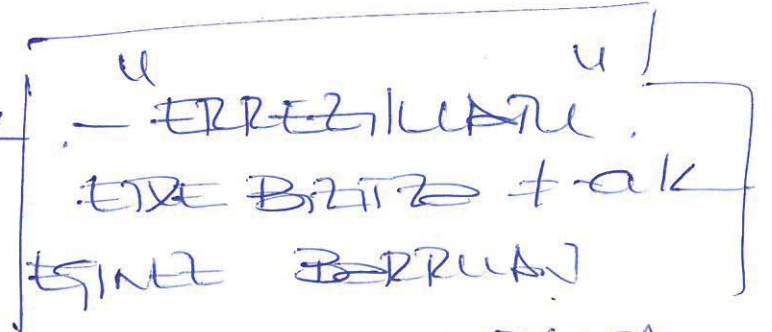 - "ERREZILUATU".
ETXE BIZITZA + -ak
EGINEZ BERRUAN